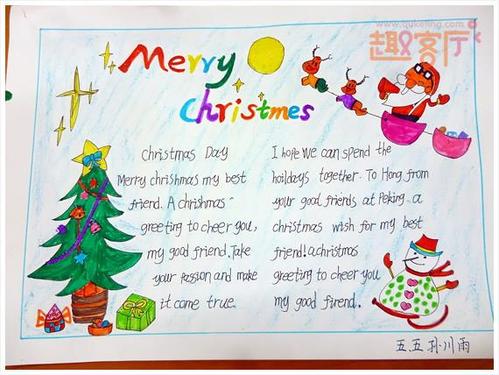 www.quketing.com
趣客厅
Merry
christmes
christmas Day
Merry chrishmas my best
friend. A chrishmas
greeting to cheer you,
my good friend. Take
your passion and make
it came true.
I hope we can spend the
hoildays together. To Hong from
your good friends at Peking. a
christmas wish for my best
friend! a christmas
greeting to cheer you
my good firend.
五.五 孙川雨